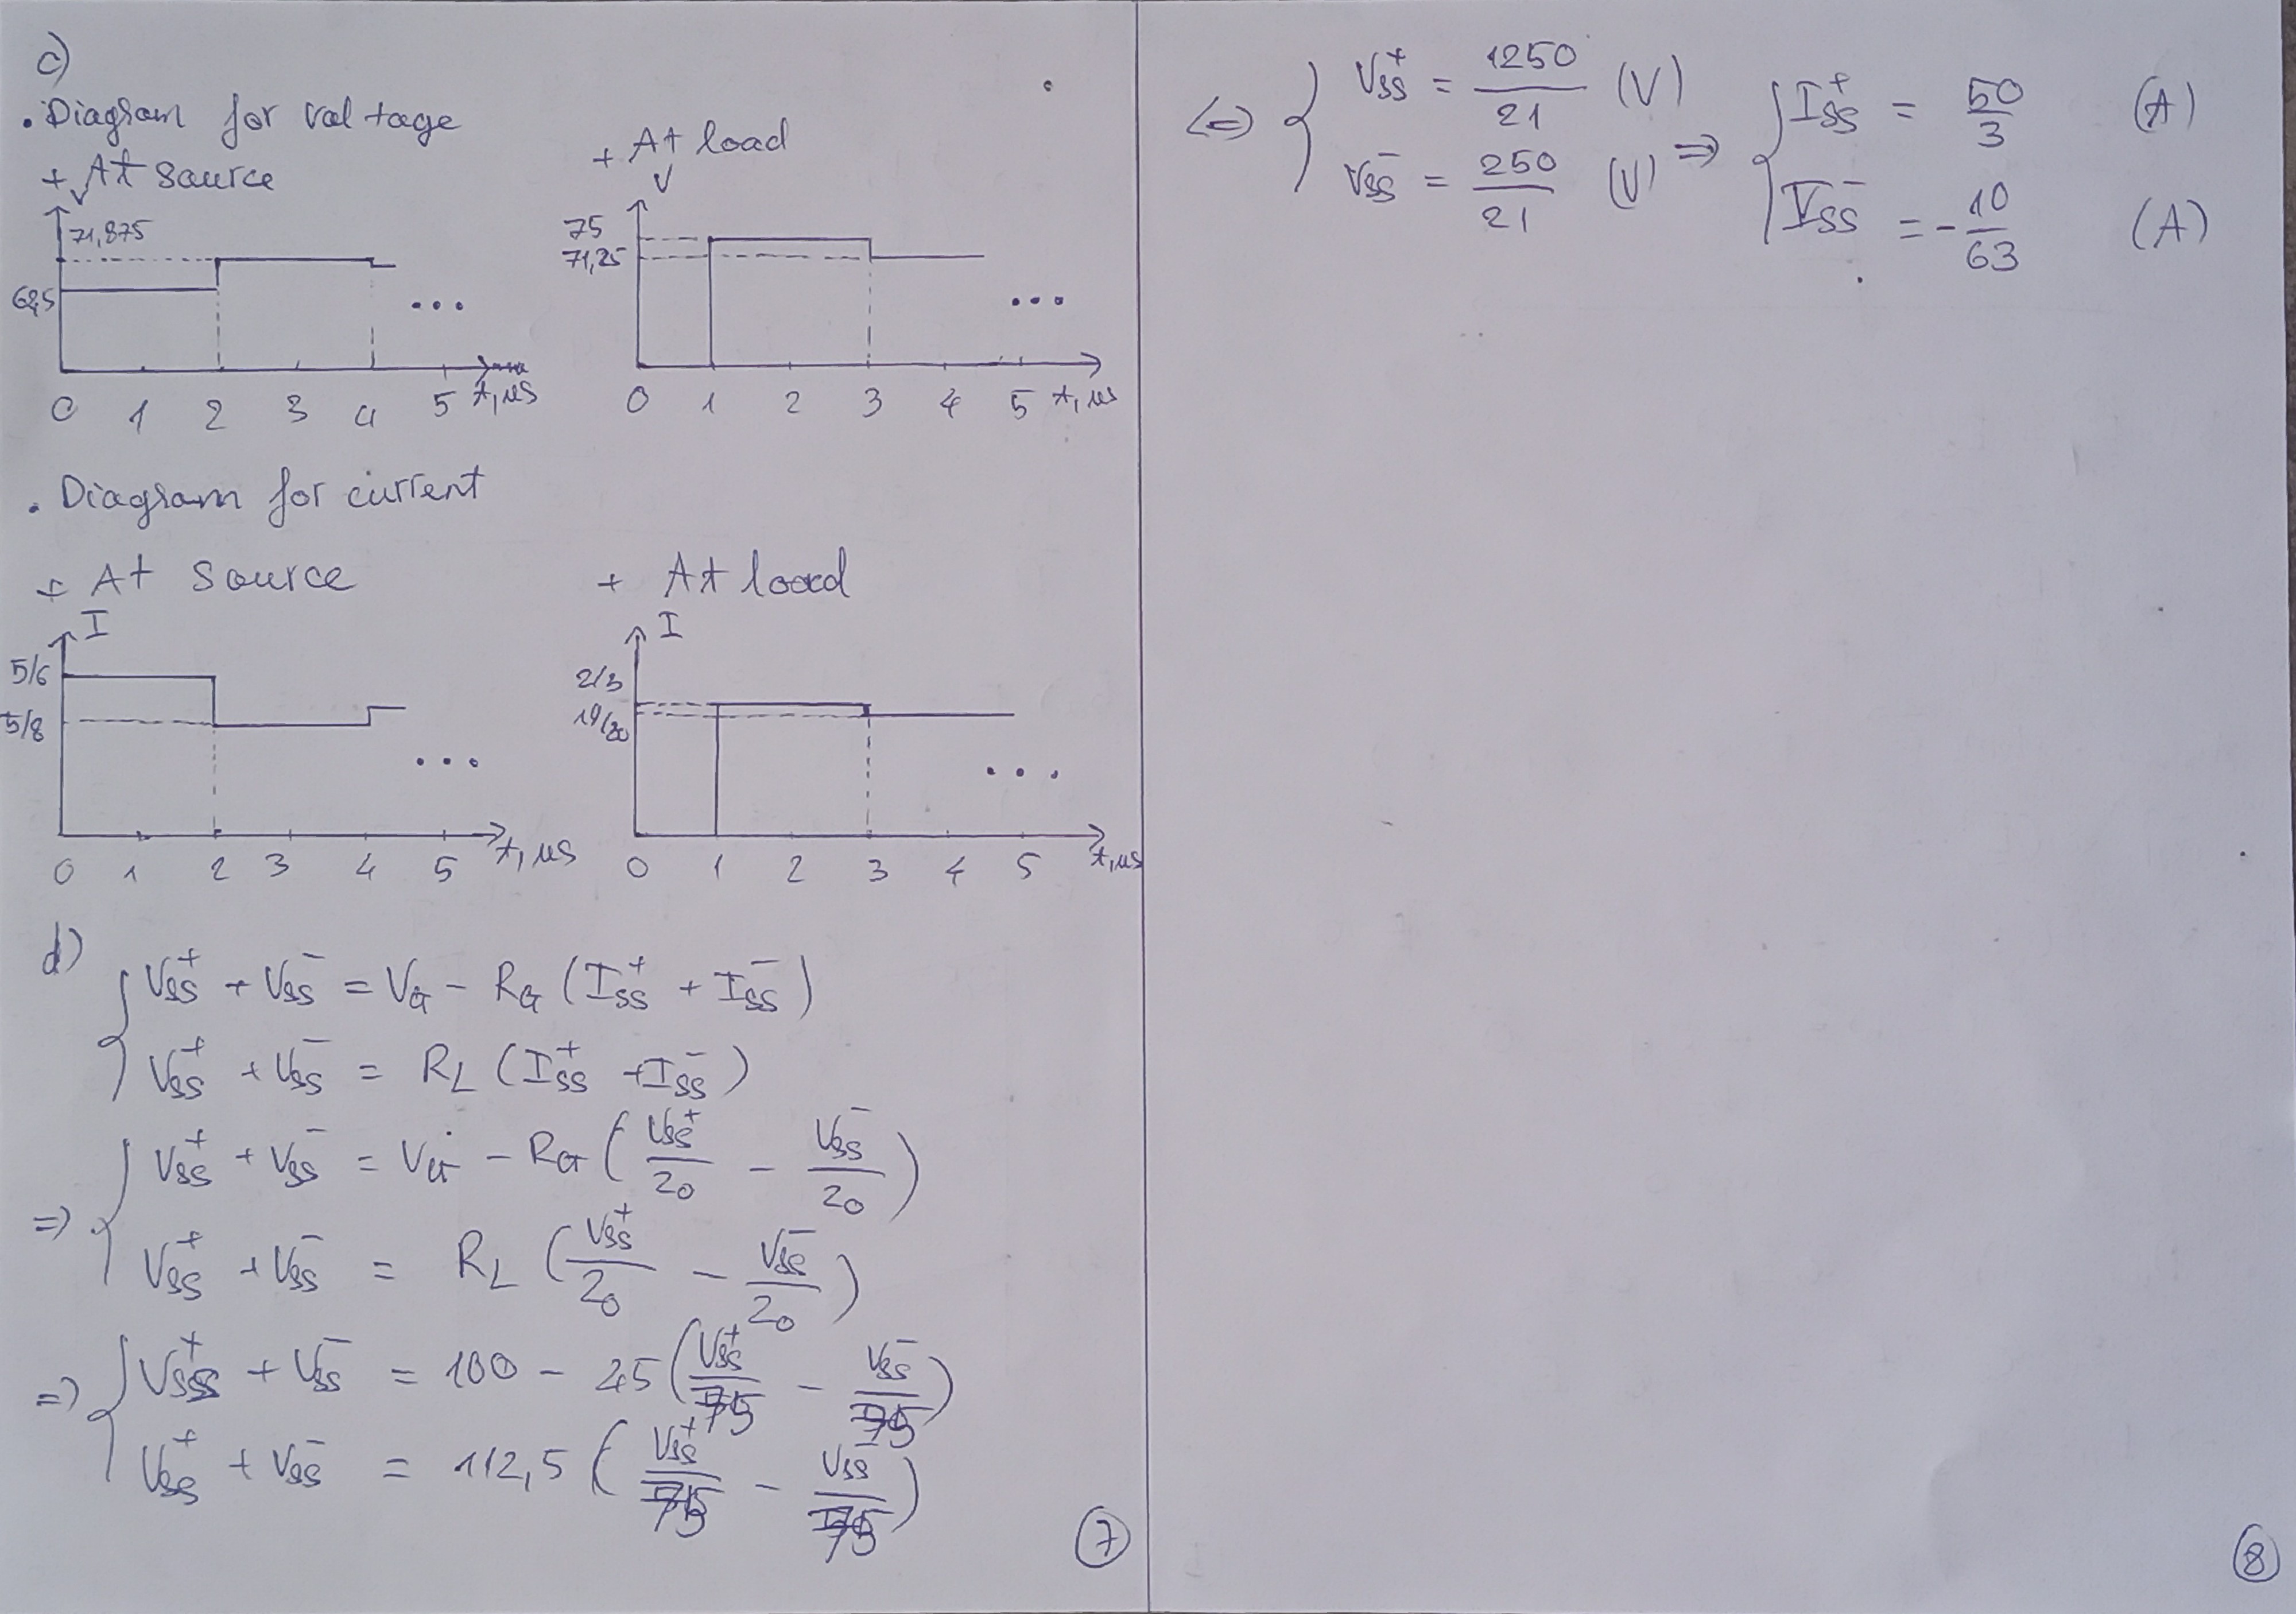 c)
. Diagram for voltage
+ At source
V
71,875
62,5
...
0 1 2 3 4 5 t, us
+ At load
V
75
71,25
...
0 1 2 3 4 5 t, us
. Diagram for current
+ At source
I
5/6
5/8
...
0 1 2 3 4 5 t, us
+ At load
I
2/3
19/30
...
0 1 2 3 4 5 t, us
d)
{ Vss⁺ + Vss⁻ = VG - RG (Iss⁺ + Iss⁻)
Vss⁺ + Vss⁻ = RL (Iss⁺ + Iss⁻)
=> { Vss⁺ + Vss⁻ = VG - RG (Vss⁺/Z0 - Vss⁻/Z0)
Vss⁺ + Vss⁻ = RL (Vss⁺/Z0 - Vss⁻/Z0)
=> { Vss⁺ + Vss⁻ = 100 - 45 (Vss⁺/75 - Vss⁻/75)
Vss⁺ + Vss⁻ = 112,5 (Vss⁺/75 - Vss⁻/75)
7
<=> { Vss⁺ = 1250/21 (V) => { Iss⁺ = 50/3 (A)
Vss⁻ = 250/21 (V) Iss⁻ = - 10/63 (A)
8